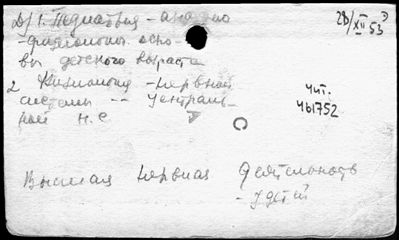 Д/1. Педиатрия - анатомо
28/XII 53
-физиологич. осно-
вы детского возраста
2 Физиология - нервной
системы -- Централь-
ной Н.С
Чит.
461752
Высшая Нервная Деятельность
- у детей